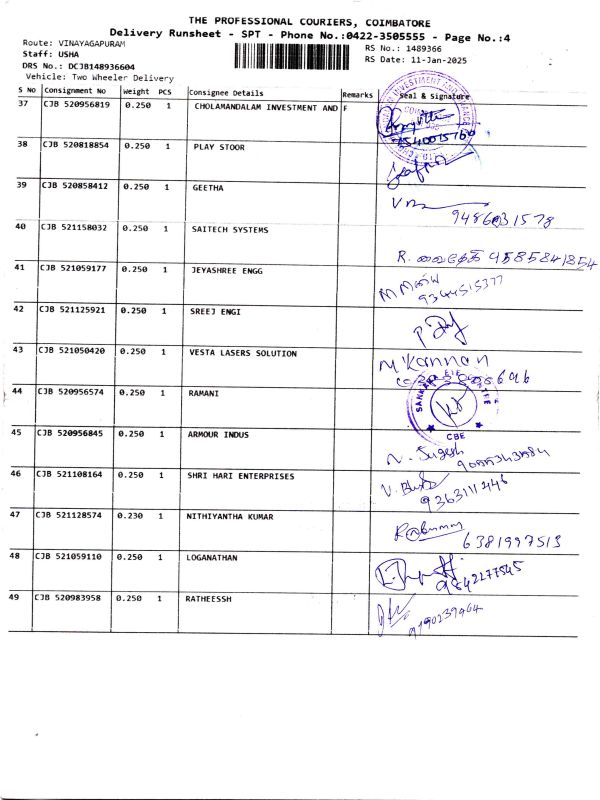 THE PROFESSIONAL COURIERS, COIMBATORE
Delivery Runsheet - SPT - Phone No.:0422-3505555 - Page No.:4
Route: VINAYAGAPURAM
Staff: USHA
DRS No.: DCJB148936604
Vehicle: Two Wheeler Delivery
RS No.: 1489366
RS Date: 11-Jan-2025
S No Consignment No Weight PCS Consignee Details Remarks Seal & Signature
37 CJB 520956819 0.250 1 CHOLAMANDALAM INVESTMENT AND F
38 CJB 520818854 0.250 1 PLAY STOOR
39 CJB 520858412 0.250 1 GEETHA
9486031578
40 CJB 521158032 0.250 1 SAITECH SYSTEMS
R. வைதேகி 9585841854
41 CJB 521059177 0.250 1 JEYASHREE ENGG
9344515377
42 CJB 521125921 0.250 1 SREEJ ENGI
43 CJB 521050420 0.250 1 VESTA LASERS SOLUTION
M'Kannan
44 CJB 520956574 0.250 1 RAMANI
CBE
45 CJB 520956845 0.250 1 ARMOUR INDUS
N. Sugesh
46 CJB 521108164 0.250 1 SHRI HARI ENTERPRISES
9363111446
47 CJB 521128574 0.230 1 NITHIYANTHA KUMAR
6381997513
48 CJB 521059110 0.250 1 LOGANATHAN
9842277545
49 CJB 520983958 0.250 1 RATHEESSH
9190239464